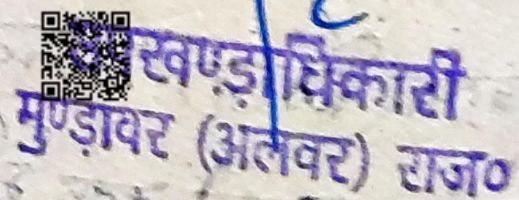 खण्डाधिकारी
मुण्डावर (अलवर) राज०